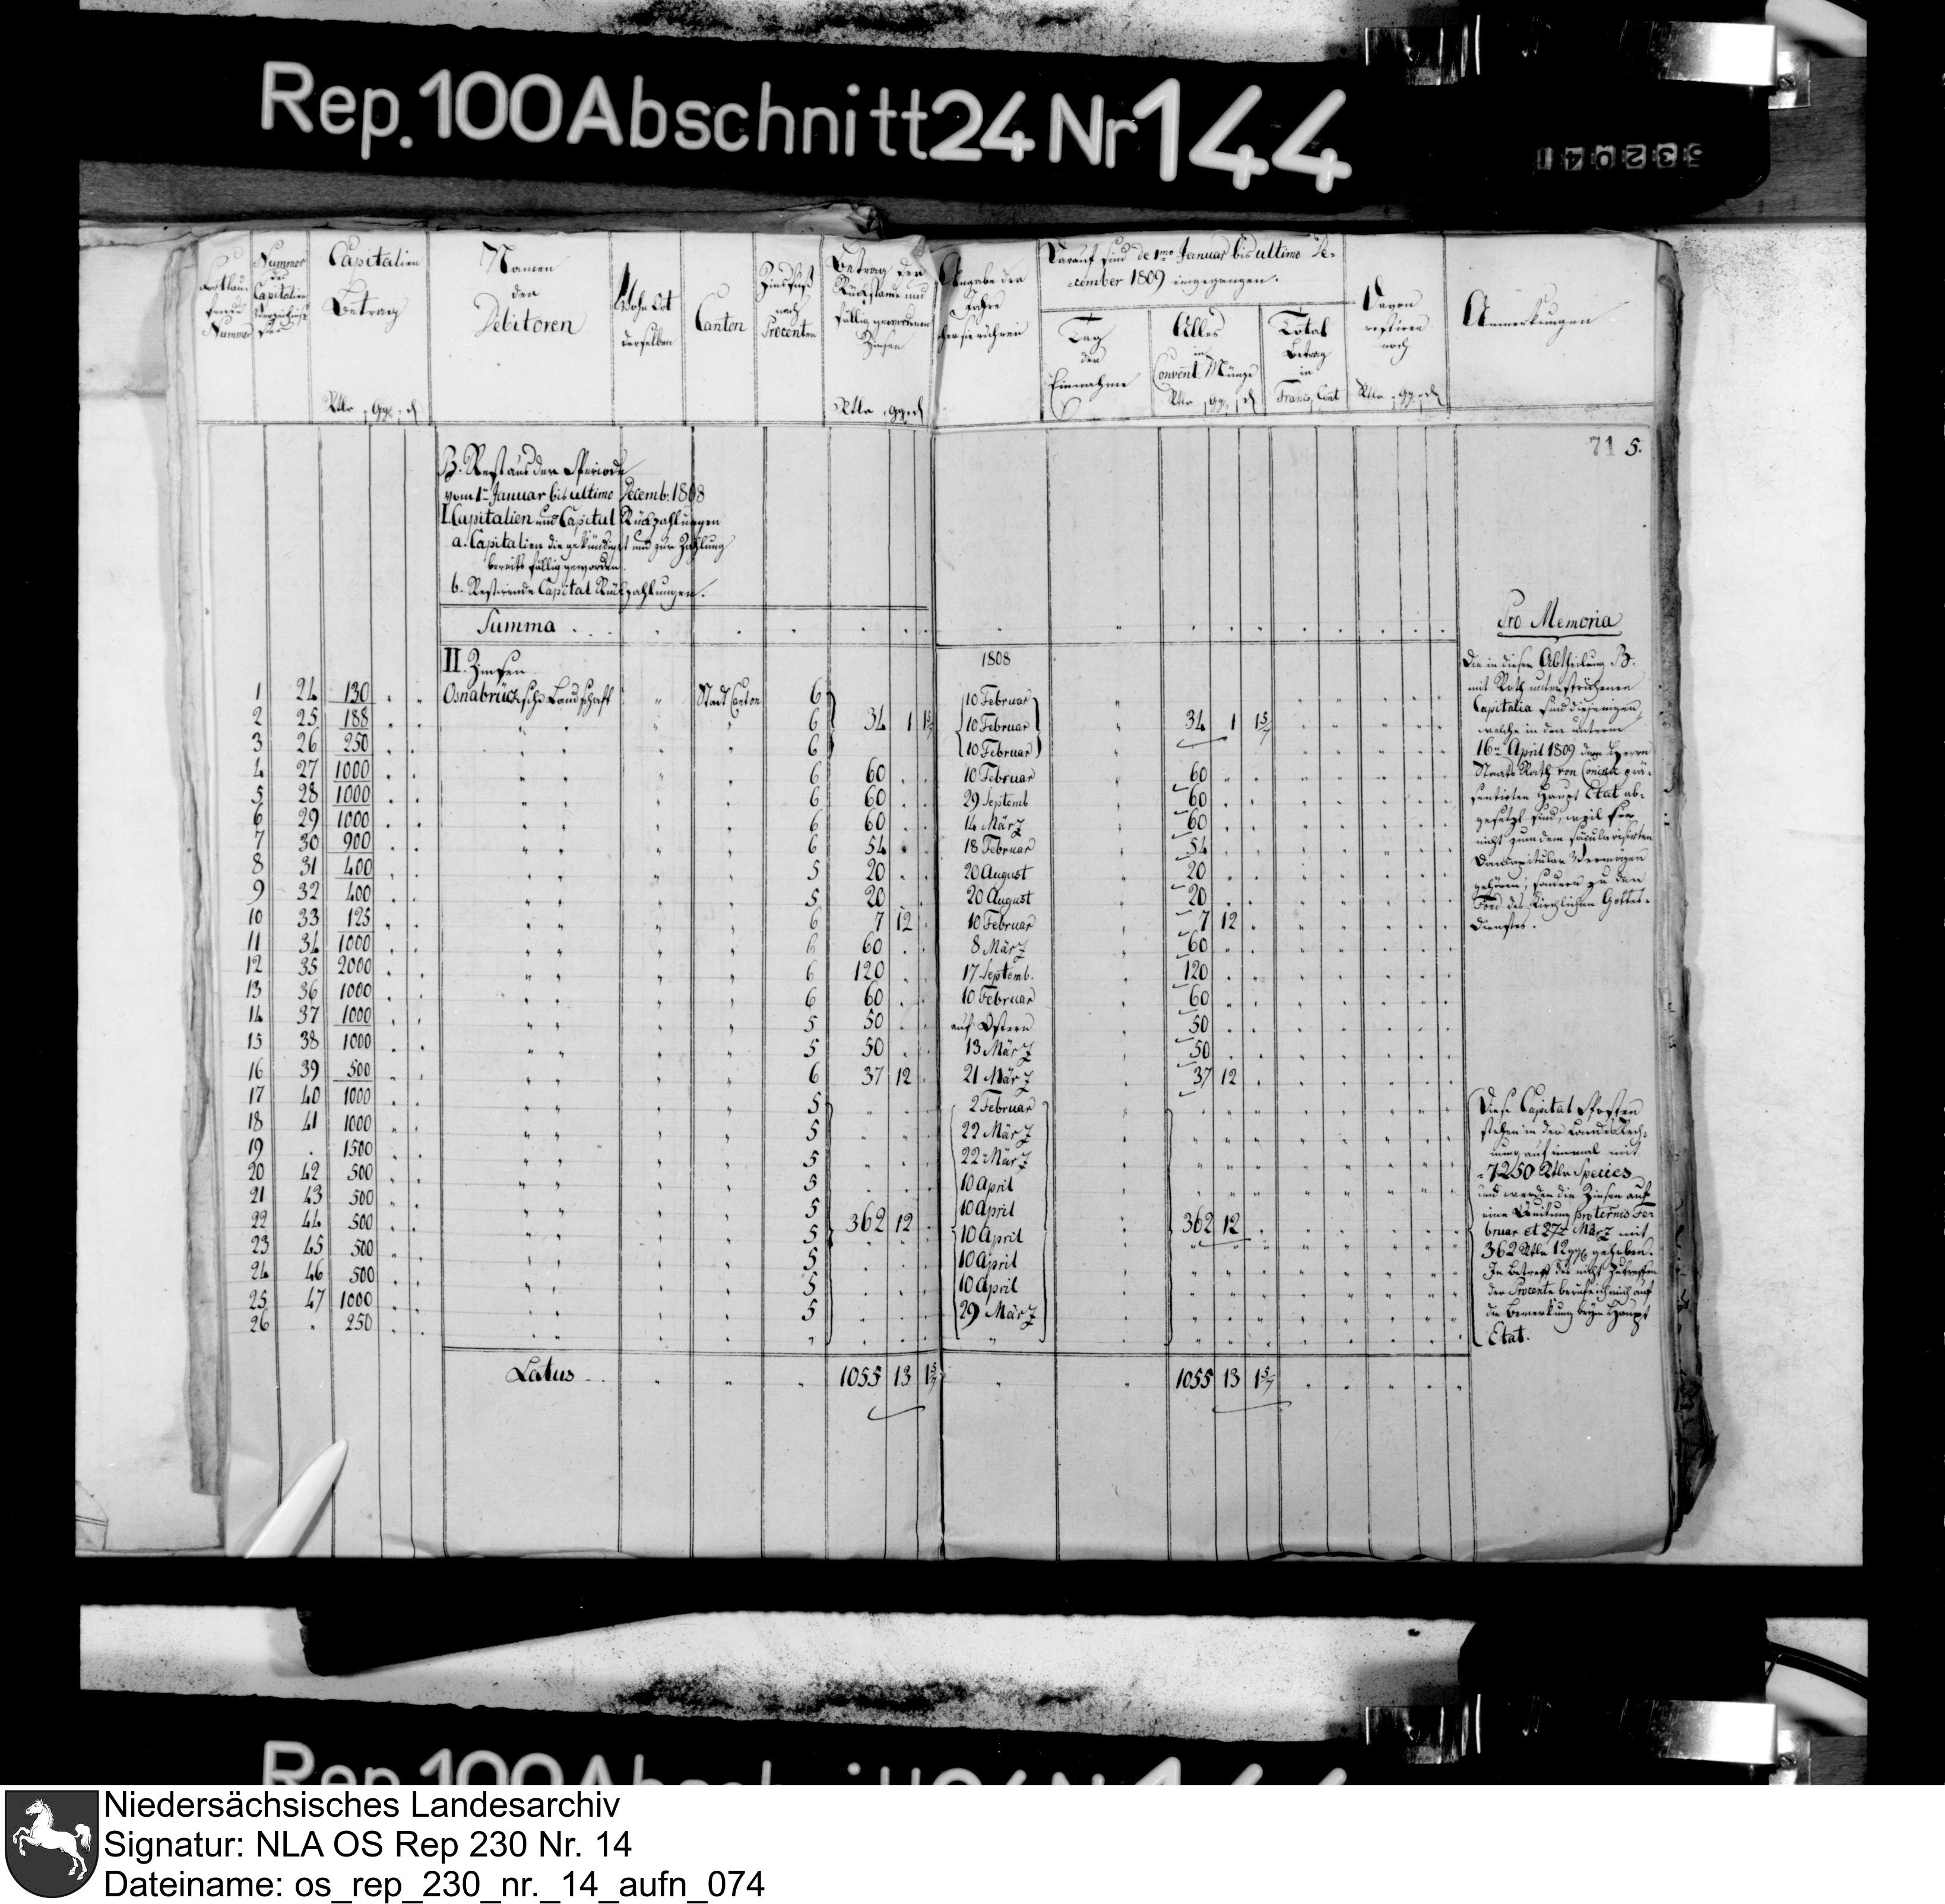 Rep. 100 Abschnitt 24 Nr 144
532041
Fortlaufende Nummer
Nummer des Capitalien
Capitalien Betrag
Rtlr ggr d
Namen der Debitoren
Wohn Ort derselben
Canton
Zinsfuß nach Procenten
Betrag der Rückstände und fällig gewordenen Zinsen
Rtlr ggr d
Angabe der Jahre
Darauf sind de 1mo Januar bis ultimo De-
cember 1809 eingegangen.
Tag der Einnahme
Alles in Convent. Münze
Rtlr ggr d
Total Betrag in
Francs, Cent
Davon restiren noch
Rtlr ggr d
Anmerkungen
71 5.
B. Rest aus der Periode
vom 1n Januar bis ultimo Decemb. 1808
I. Capitalien und Capital Rückzahlungen
a. Capitalien die gekündigt und zur Zahlung
bereits fällig geworden.
b. Restirende Capital Rückzahlungen.
Summa
II. Zinsen 1808
1 24 130 Osnabrücksche Landschaft " Stadt Canton 6 10 Februar
2 25 188 " " 6 34 1 1 5/7 10 Februar 34 1 1 5/7
3 26 250 " " 6 10 Februar
4 27 1000 " " 6 60 10 Februar 60
5 28 1000 " " 6 60 29 Septemb 60
6 29 1000 " " 6 60 14 März 60
7 30 900 " " 6 54 18 Februar 54
8 31 400 " " 5 20 20 August 20
9 32 400 " " 5 20 20 August 20
10 33 125 " " 6 7 12 10 Februar 7 12
11 34 1000 " " 6 60 8 März 60
12 35 2000 " " 6 120 17 Septemb. 120
13 36 1000 " " 6 60 10 Februar 60
14 37 1000 " " 5 50 auf Ostern 50
15 38 1000 " " 5 50 13 März 50
16 39 500 " " 6 37 12 21 März 37 12
17 40 1000 " " 5 2 Februar
18 41 1000 " " 5 22 März
19 . 1500 " " 5 22 März
20 42 500 " " 5 10 April
21 43 500 " " 5 10 April
22 44 500 " " 5 362 12 10 April 362 12
23 45 500 " " 5 10 April
24 46 500 " " 5 10 April
25 47 1000 " " 5 29 März
26 . 250 " "
Latus 1055 13 1 5/7 1055 13 1 5/7
Pro Memoria
Die in dieser Abtheilung B.
mit Roth unterstrichenen
Capitalia sind diejenigen,
welche in den unterm
16n April 1809 dem Herrn
Staats Rath von Coninx prä-
sentirten Haupt Etat ab-
gesetzt sind, weil sie
nicht zum dem säcularisirten
Domcapitular Vermögen
gehören, sondern zu den
Fond des Kirchlichen Gottes-
dienstes.
Diese Capital Posten
stehen in der Landes Rech-
nung auf einmal mit
7250 Rtlr Species
und werden die Zinsen auf
eine Quitung pro terminis Fe-
bruar et 27n März mit
362 Rtlr 12 ggr gehoben.
In Betreff des nicht Zutreffen
der Procente berufe ich mich auf
die Bemerkung beym Haupt
Etat.
Rep. 100 Abschnitt 24 Nr 144
Niedersächsisches Landesarchiv
Signatur: NLA OS Rep 230 Nr. 14
Dateiname: os_rep_230_nr._14_aufn_074